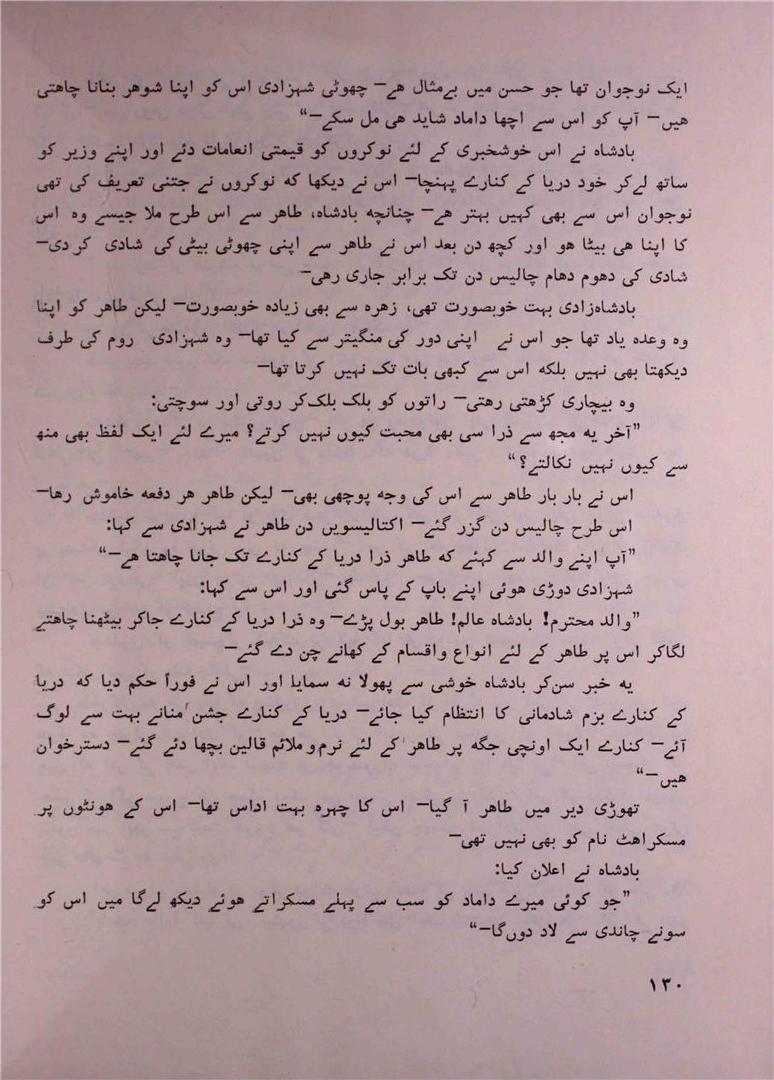 ایک نوجوان تھا جو حسن میں بےمثال ھے— چھوٹی شہزادی اس کو اپنا شوھر بنانا چاھتی
ھیں— آپ کو اس سے اچھا داماد شاید ھی مل سکے—“
بادشاہ نے اس خوشخبری کے لئے نوکروں کو قیمتی انعامات دئے اور اپنے وزیر کو
ساتھ لےکر خود دریا کے کنارے پہنچا— اس نے دیکھا کہ نوکروں نے جتنی تعریف کی تھی
نوجوان اس سے بھی کہیں بہتر ھے— چنانچہ بادشاہ، طاھر سے اس طرح ملا جیسے وہ اس
کا اپنا ھی بیٹا ھو اور کچھ دن بعد اس نے طاھر سے اپنی چھوٹی بیٹی کی شادی کر دی—
شادی کی دھوم دھام چالیس دن تک برابر جاری رھی—
بادشاہزادی بہت خوبصورت تھی، زھرہ سے بھی زیادہ خوبصورت— لیکن طاھر کو اپنا
وہ وعدہ یاد تھا جو اس نے اپنی دور کی منگیتر سے کیا تھا— وہ شہزادی روم کی طرف
دیکھتا بھی نہیں بلکہ اس سے کبھی بات تک نہیں کرتا تھا—
وہ بیچاری کڑھتی رھتی— راتوں کو بلک بلککر روتی اور سوچتی:
”آخر یہ مجھ سے ذرا سی بھی محبت کیوں نہیں کرتے؟ میرے لئے ایک لفظ بھی منھ
سے کیوں نہیں نکالتے؟“
اس نے بار بار طاھر سے اس کی وجہ پوچھی بھی— لیکن طاھر ھر دفعہ خاموش رھا—
اس طرح چالیس دن گزر گئے— اکتالیسویں دن طاھر نے شہزادی سے کہا:
”آپ اپنے والد سے کہئے کہ طاھر ذرا دریا کے کنارے تک جانا چاھتا ھے—“
شہزادی دوڑی ھوئی اپنے باپ کے پاس گئی اور اس سے کہا:
”والد محترم! بادشاہ عالم! طاھر بول پڑے— وہ ذرا دریا کے کنارے جاکر بیٹھنا چاھتے
لگاکر اس پر طاھر کے لئے انواع واقسام کے کھانے چن دے گئے—
یہ خبر سنکر بادشاہ خوشی سے پھولا نہ سمایا اور اس نے فوراً حکم دیا کہ دریا
کے کنارے بزم شادمانی کا انتظام کیا جائے— دریا کے کنارے جشن منانے بہت سے لوگ
آئے— کنارے ایک اونچی جگہ پر طاھر کے لئے نرم و ملائم قالین بچھا دئے گئے— دسترخوان
ھیں—“
تھوڑی دیر میں طاھر آ گیا— اس کا چہرہ بہت اداس تھا— اس کے ھونٹوں پر
مسکراھٹ نام کو بھی نہیں تھی—
بادشاہ نے اعلان کیا:
”جو کوئی میرے داماد کو سب سے پہلے مسکراتے ھوئے دیکھ لےگا میں اس کو
سونے چاندی سے لاد دوںگا—“
۱۳۰